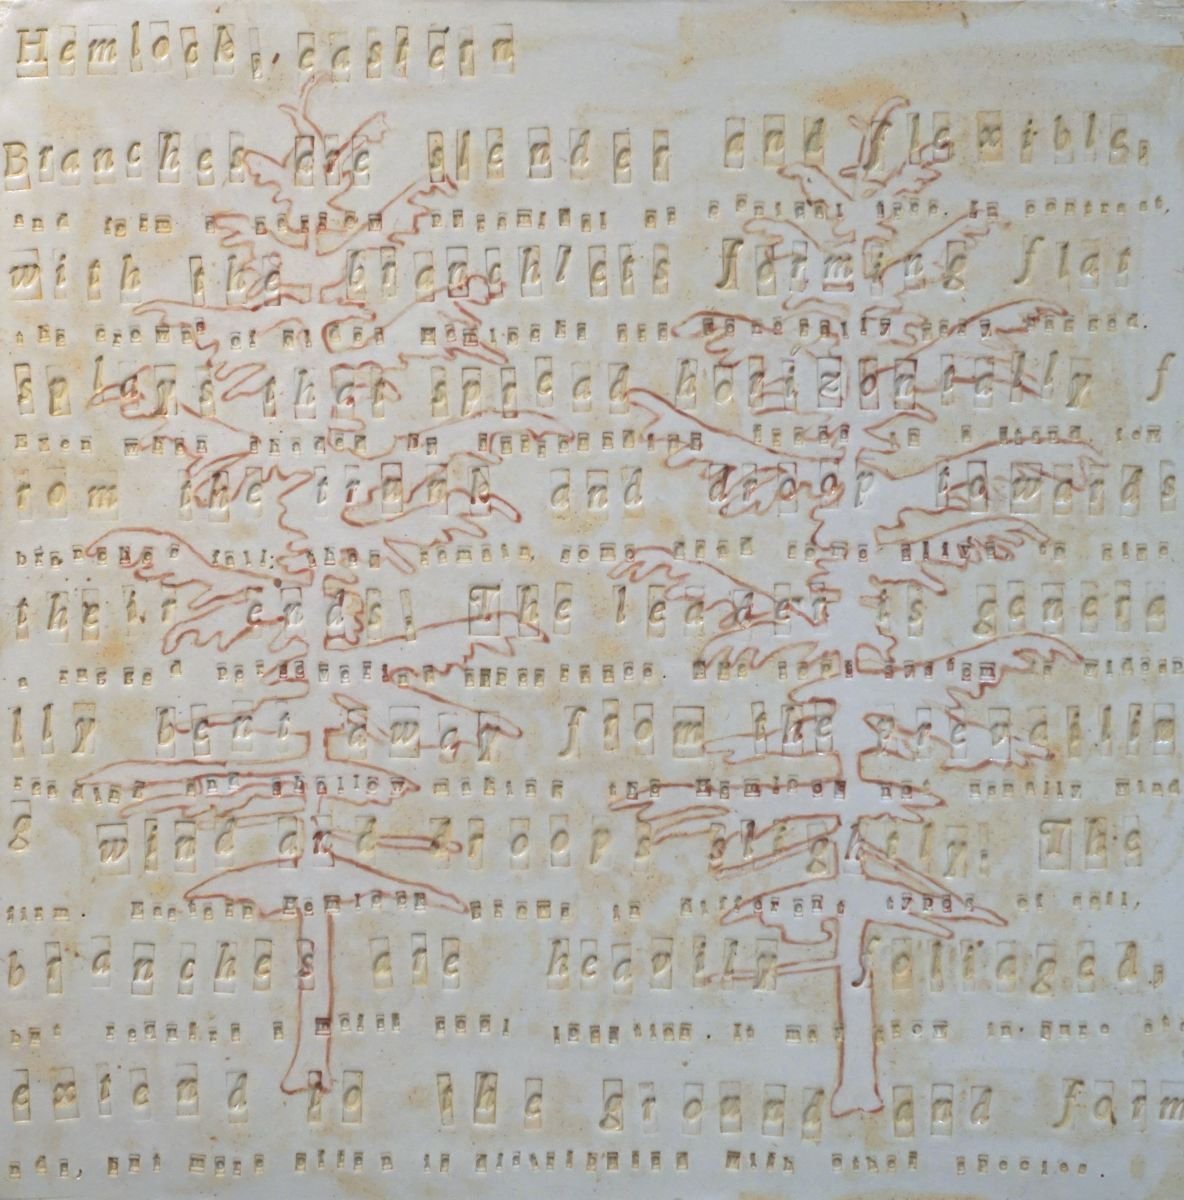 Hemlock, eastern
Branches are slender and flexible,
and form a narrow pyramidal or conical tree. In contrast,
with the branchlets forming flat
the crowns of older Hemlocks are generally very
sprays that spread horizontally f
Even when shaded by surrounding trees in a stand few
rom the trunk and droop towards
branches fall: they remain, some dead some alive to give
their ends. The leader is genera
a ragged appearance The root system is widesp
lly bent away from the prevailin
reading and shallow making the Hemlock not usually wind
g wind and droops slightly. The
firm. Eastern Hemlock grows in different types of soil,
branches are heavily foliaged,
but require a moist cool location. It may grow in pure sta
extend to the ground and form
nds, but more often is distributed with other species.